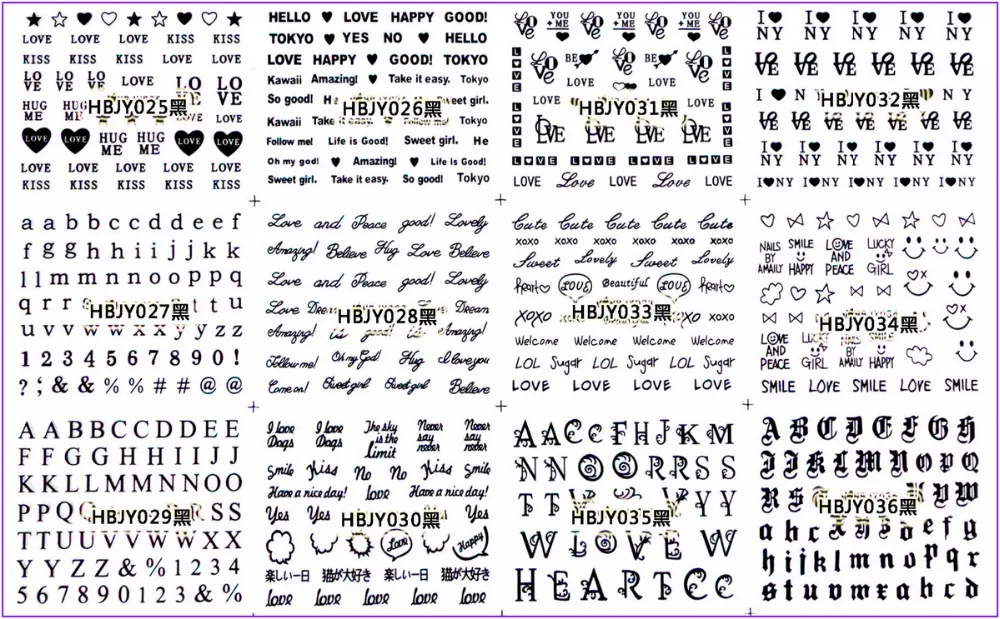 LOVE LOVE LOVE KISS KISS
KISS KISS KISS LOVE LOVE
LO LO LO LOVE LO LO
VE VE VE VE VE
HUG HUG
ME ME LOVE
HBJY025黑
LOVE LOVE HUG HUG LOVE LOVE
ME ME
LOVE LOVE LOVE LOVE LOVE
KISS KISS KISS KISS KISS
HELLO ♥ LOVE HAPPY GOOD!
TOKYO ♥ YES NO ♥ HELLO
LOVE HAPPY ♥ GOOD! TOKYO
Kawaii Amazing! ♥ Take it easy. Tokyo
So good!
HBJY026黑
Kawaii Take it easy. Follow me! Tokyo
Follow me! Life is Good! Sweet girl. He
Oh my god! ♥ Amazing! ♥ Life is Good!
Sweet girl. Take it easy. So good! Tokyo
LOVE YOU + ME LOVE YOU + ME LOVE YOU + ME
LOVE BE LOVE BE LOVE
LOVE LOVE
LOVE LOVE
HBJY031黑
LOVE LOVE LOVE LOVE
L♥VE L♥VE L♥VE L♥VE
LOVE Love LOVE Love LOVE
I♥ I♥ I♥ I♥ I♥
NY NY NY NY NY
LOVE LOVE LOVE LOVE LOVE LOVE
I ♥ N Y
HBJY032黑
LOVE LOVE LOVE LOVE LOVE LOVE
I♥ I♥ I♥ I♥ I♥ I♥
NY NY NY NY NY NY
I♥NY I♥NY I♥NY I♥NY I♥NY
a a b b c c d d e e f
f g g h h i i j j k k
l l m m n n o o p p q
q r r s t t u
HBJY027黑
u v v w w x x y y z z
1 2 3 4 5 6 7 8 9 0 !
? ; & & % % # # @ @
Love and Peace good! Lovely
Amazing! Believe Hug Love Believe
Love and Peace good! Lovely
Love Dream
HBJY028黑
Amazing! is good! is Amazing!
Follow me! Oh my God! Hug I love you
Come on! Sweet girl Sweet girl Believe
Cute Cute Cute Cute Cute
xoxo xoxo xoxo xoxo xoxo xoxo
Sweet Lovely Sweet Lovely
Heart LOVE Beautiful LOVE Heart
HBJY033黑
XOXO XO XOXO
Welcome Welcome Welcome Welcome
LOL Sugar LOL Sugar LOL Sugar
LOVE LOVE LOVE LOVE
NAILS SMILE LOVE LUCKY
BY AND
AMAILY HAPPY PEACE GIRL
HBJY034黑
LOVE LUCKY SMILE NAILS SMILE
AND BY
PEACE GIRL AMAILY HAPPY
SMILE LOVE SMILE LOVE SMILE
A A B B C C D D E E
F F G G H H I I J J
K K L L M M N N O O
P P Q R S S
HBJY029黑
T T U U V V W W X X
Y Y Z Z & % 1 2 3 4
5 6 7 8 9 0 1 2 3 & %
I love I love The sky Never Never
Dogs Dogs is the say say
limit never never
Smile Kiss No No Kiss Smile
Have a nice day! love Have a nice day!
Yes Yes Yes
HBJY030黑
Love Happy
楽しい一日 猫が大好き 楽しい一日 猫が大好き
love love love love love
A A C C F H J K M
N N O O R R S S
T T V Y Y
HBJY035黑
W L O V E W
H E A R T C C
A B C D E F G H
I J K L M N O P Q
R S V W
HBJY036黑
a b c d e f g
h i j k l m n o p q r
s t u v w x a b c d